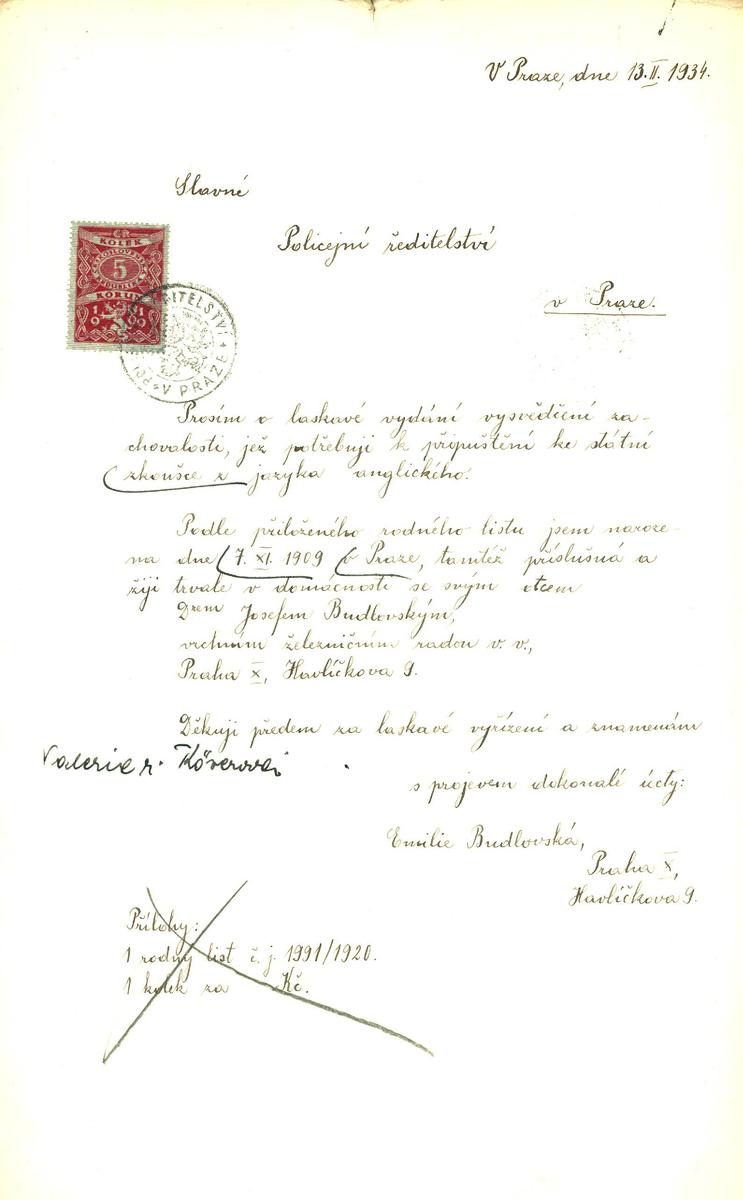 V Praze, dne 13.II.1934.
Slavné
Policejní ředitelství
v Praze.
ČR
KOLEK
5
KORUN
19 19
ŘEDITELSTVÍ
V PRAZE
Prosím o laskavé vydání vysvědčení za-
chovalosti, jež potřebuji k připuštění ke státní
zkoušce z jazyka anglického.
Podle přiloženého rodného listu jsem naroze-
na dne 7. XI. 1909 v Praze, tamtéž příslušná a
žiji trvale v domácnosti se svým otcem
Drem Josefem Budlovským,
vrchním železničním radou v. v.,
Praha X, Havlíčkova 9.
Děkuji předem za laskavé vyřízení a znamenám
Valerie r.
s projevem dokonalé úcty:
Emilie Budlovská,
Praha X,
Havlíčkova 9.
Přílohy:
1 rodný list č. j. 1991/1920.
1 kolek za Kč.